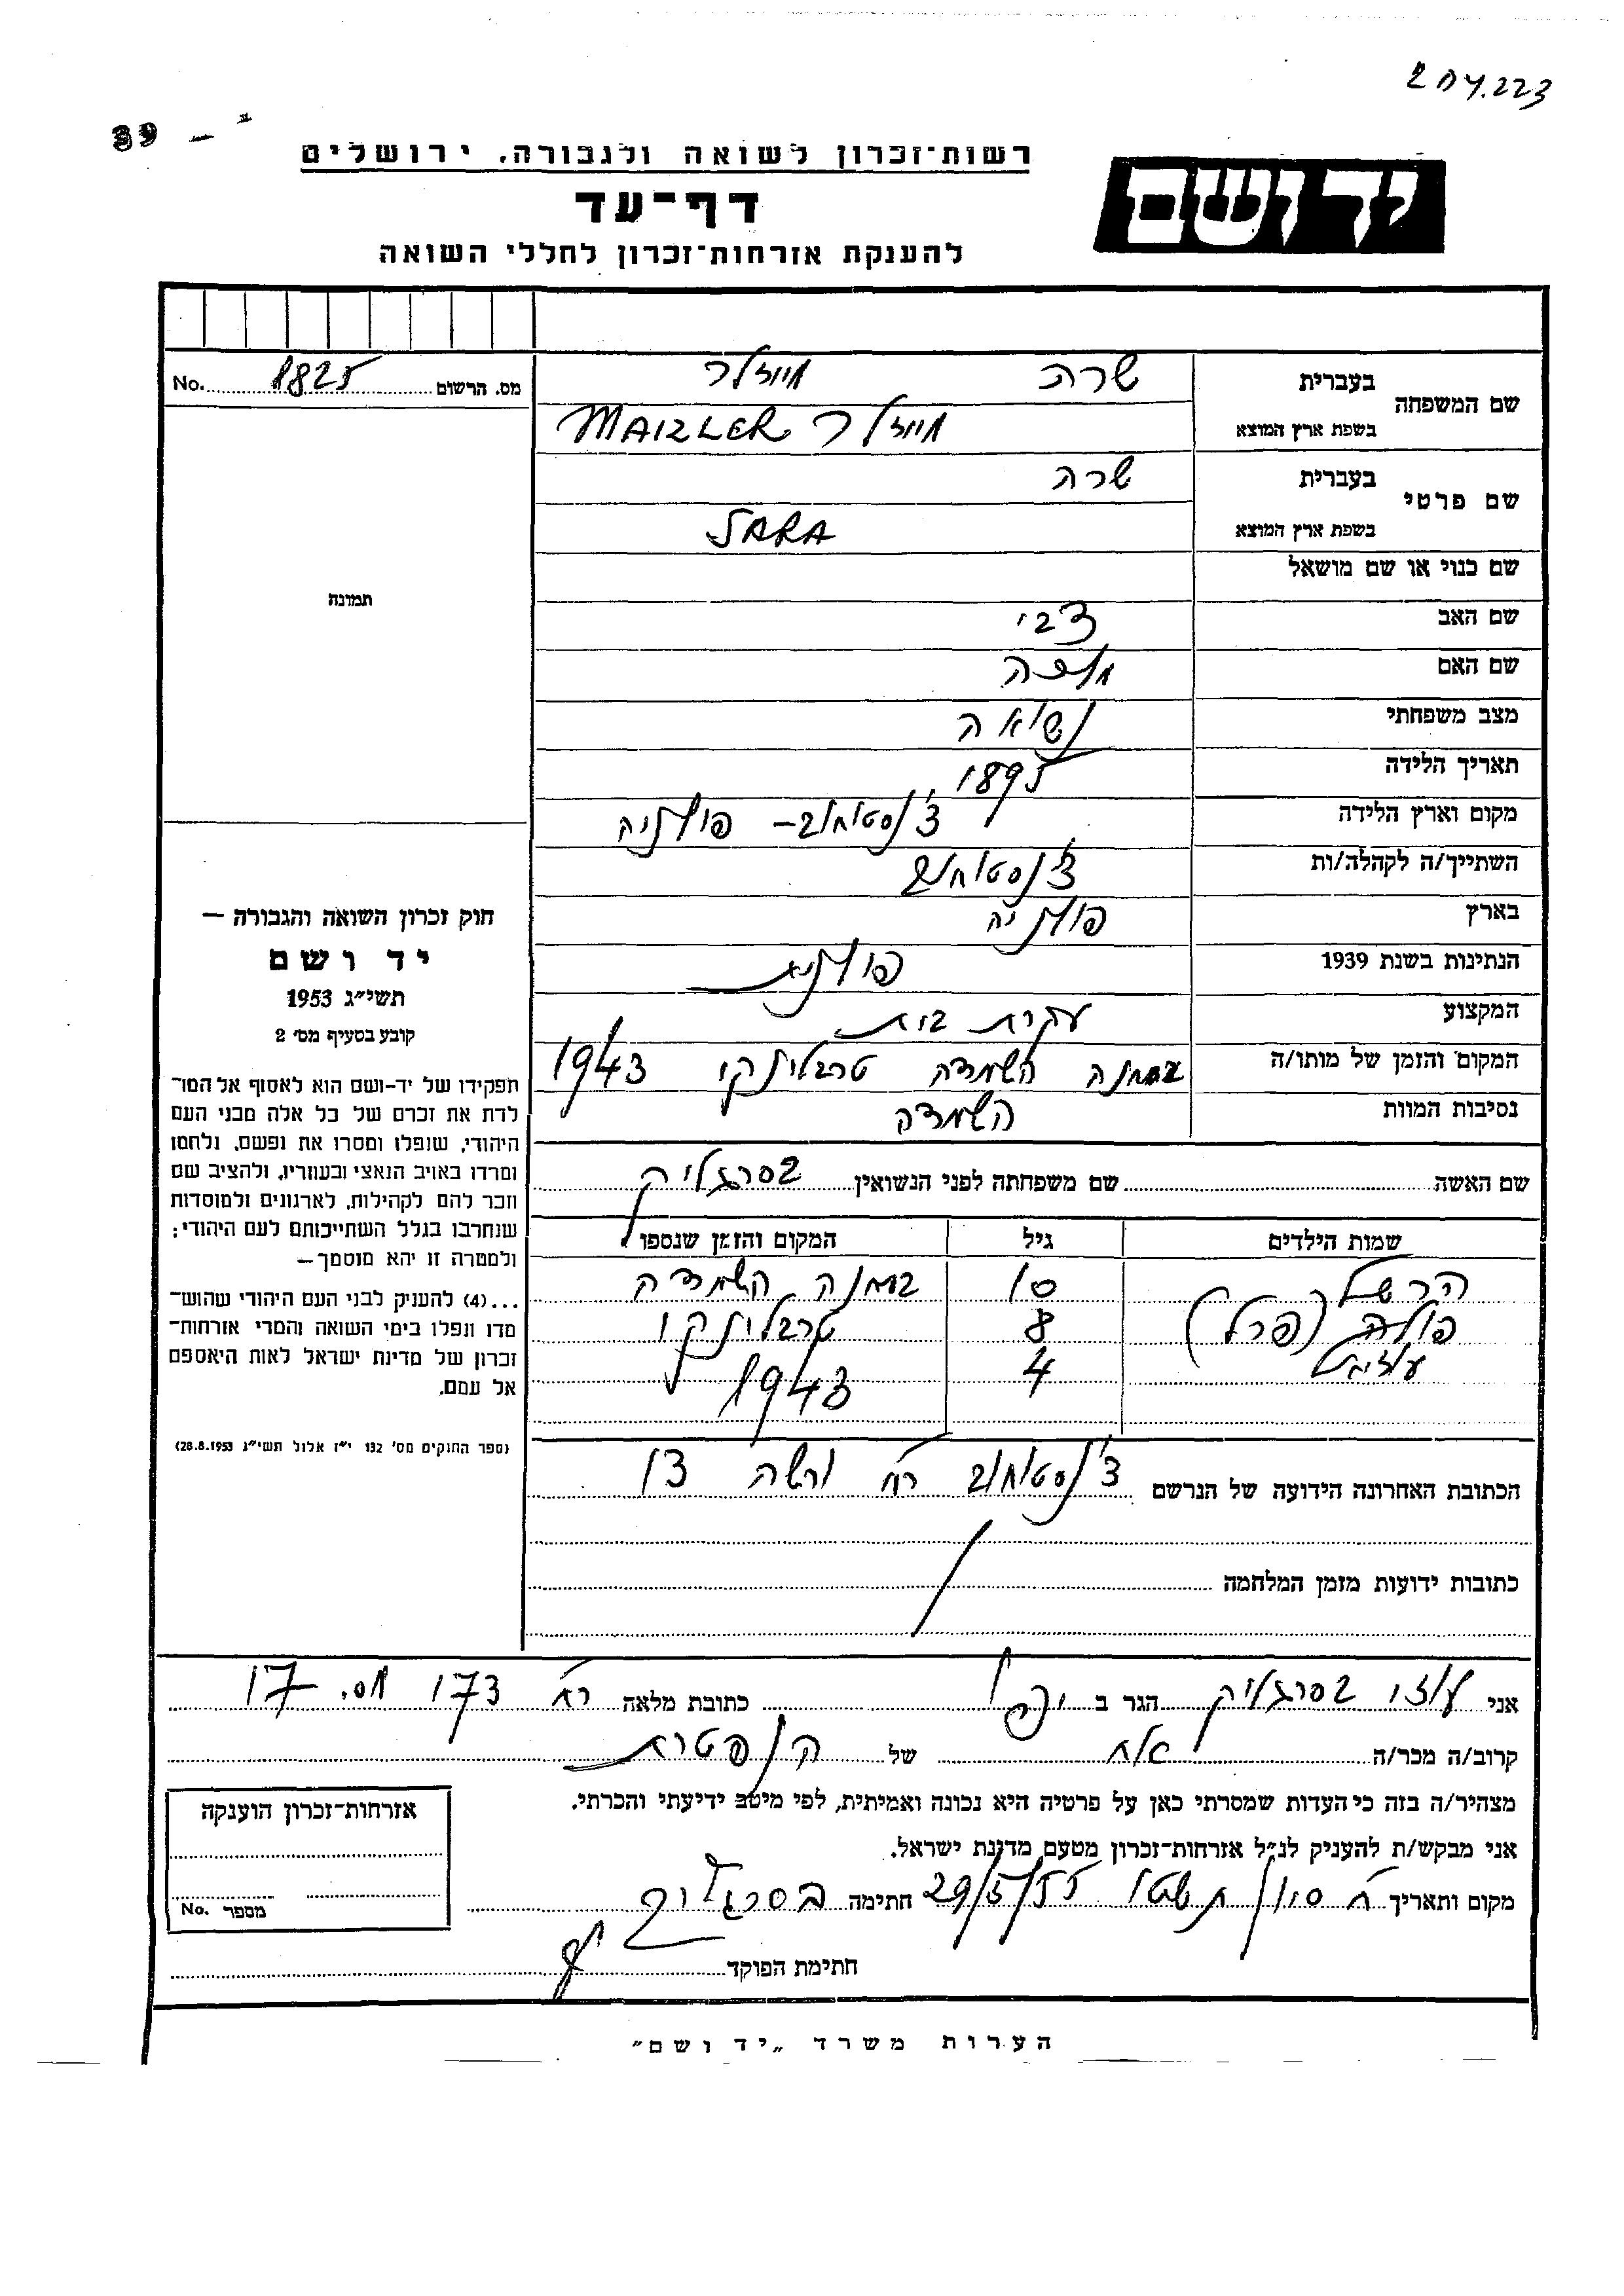 204.223
89 – י
רשות־זכרון לשואה ולגבורה, ירושלים
דף־עד
להענקת אזרחות־זכרון לחללי השואה
יד ושם
מס. הרשום 1825 No.
שם המשפחה
בעברית שרה מייזלר
בשפת ארץ המוצא מייזלר MAIZLER
שם פרטי
בעברית שרה
בשפת ארץ המוצא SARA
שם כנוי או שם מושאל
תמונה
שם האב צבי
שם האם
מצב משפחתי נשואה
תאריך הלידה 1895
מקום וארץ הלידה צ'נסטוחוב – פולניה
השתייך/ה לקהלה/ות צ'נסטוחוב
בארץ פולניה
הנתינות בשנת 1939 פולנית
המקצוע עקרת בית
המקום והזמן של מותו/ה במחנה השמדה טרבלינקי 1943
נסיבות המוות השמדה
שם האשה שם משפחתה לפני הנשואין בסרגליק
שמות הילדים גיל המקום והזמן שנספו
הרשל 10 במחנה השמדה
פולה (פרל) 8 טרבלינקי
עוזיאל 4 1943
הכתובת האחרונה הידועה של הנרשם צ'נסטוחוב רח' ורשה 13
כתובות ידועות מזמן המלחמה
חוק זכרון השואה והגבורה —
יד ושם
תשי״ג 1953
קובע בסעיף מס׳ 2
תפקידו של יד־ושם הוא לאסוף אל המו־
לדת את זכרם של כל אלה מבני העם
היהודי, שנפלו ומסרו את נפשם, נלחמו
ומרדו באויב הנאצי ובעוזריו, ולהציב שם
וזכר להם לקהילות, לארגונים ולמוסדות
שנחרבו בגלל השתייכותם לעם היהודי;
ולמטרה זו יהא מוסמך —
...(4) להעניק לבני העם היהודי שהוש־
מדו ונפלו בימי השואה והמרי אזרחות־
זכרון של מדינת ישראל לאות היאספם
אל עמם.
(ספר החוקים מס׳ 132 י״ז אלול תשי״ג 28.8.1953)
אני עוזי בסרגליק הגר ב יפו כתובת מלאה רח' 173 מס. 17
קרוב/ה מכר/ה אח של הנפטרת
מצהיר/ה בזה כי העדות שמסרתי כאן על פרטיה היא נכונה ואמיתית, לפי מיטב ידיעתי והכרתי.
אני מבקש/ת להעניק לנ״ל אזרחות־זכרון מטעם מדינת ישראל.
מקום ותאריך ח' סיון תשטו 29/5/55 חתימה בסרגליק
חתימת הפוקד
אזרחות־זכרון הוענקה
מספר No.
הערות משרד „יד ושם״